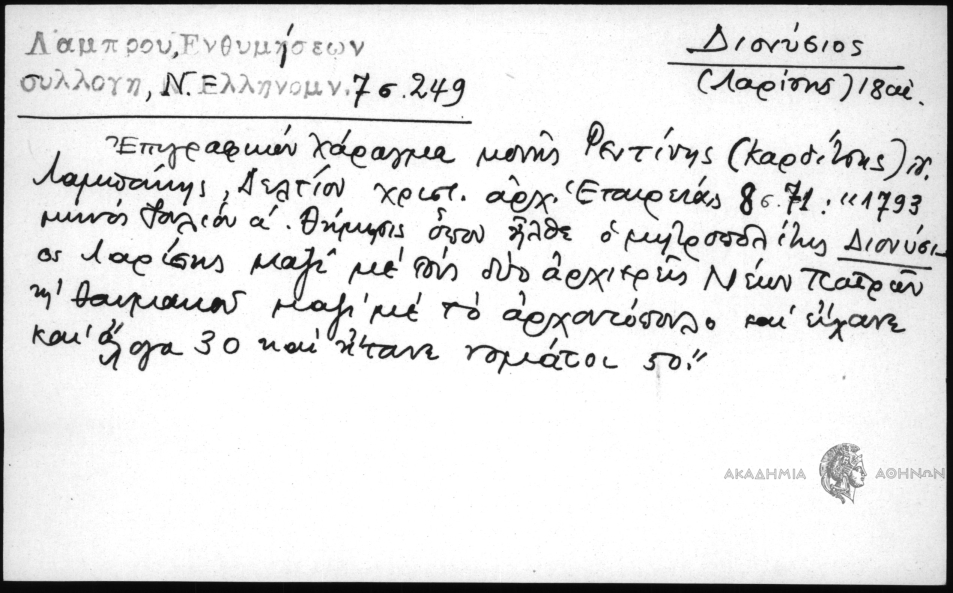 Λαμπρου, Ενθυμήσεων
συλλογη, Ν. Ελληνομν. 7 σ. 249
Διονύσιος
(Λαρίσης) 18 αἰ.
Ἐπιγραφικὸν χάραγμα μονῆς Ρεντίνης (Καρδίτσης)
Λαμπάκης, Δελτίον χριστ. ἀρχ. Ἑταιρείας 8 σ. 71: "1793
μηνὸς Ἰουλίου α΄. Θύμησις ὅπου ἦλθε ὁ μητροπολίτης Διονύσι-
ος Λαρίσης μαζὶ μὲ τοὺς δύο ἀρχιερεῖς Νέων Πατρῶν
κὶ Θαυμακοῦ μαζὶ μὲ τὸ ἀρχοντόπουλο καὶ εἴχανε
καὶ ἄλογα 30 καὶ ἤτανε νομάτοι 50."
ΑΚΑΔΗΜΙΑ ΑΘΗΝΩΝ